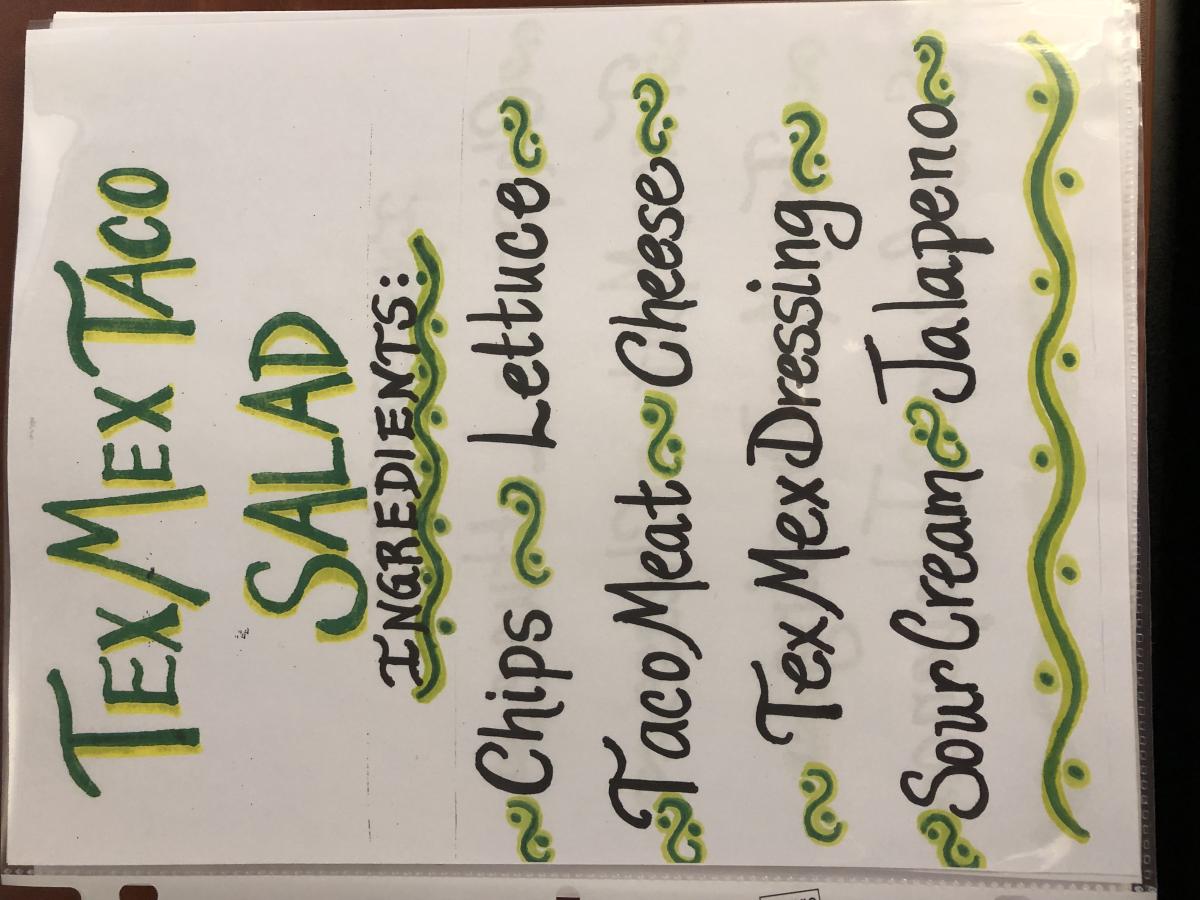 TEX MEX TACO
SALAD
INGREDIENTS:
Chips Lettuce
Taco Meat Cheese
Tex Mex Dressing
Sour Cream Jalapeno